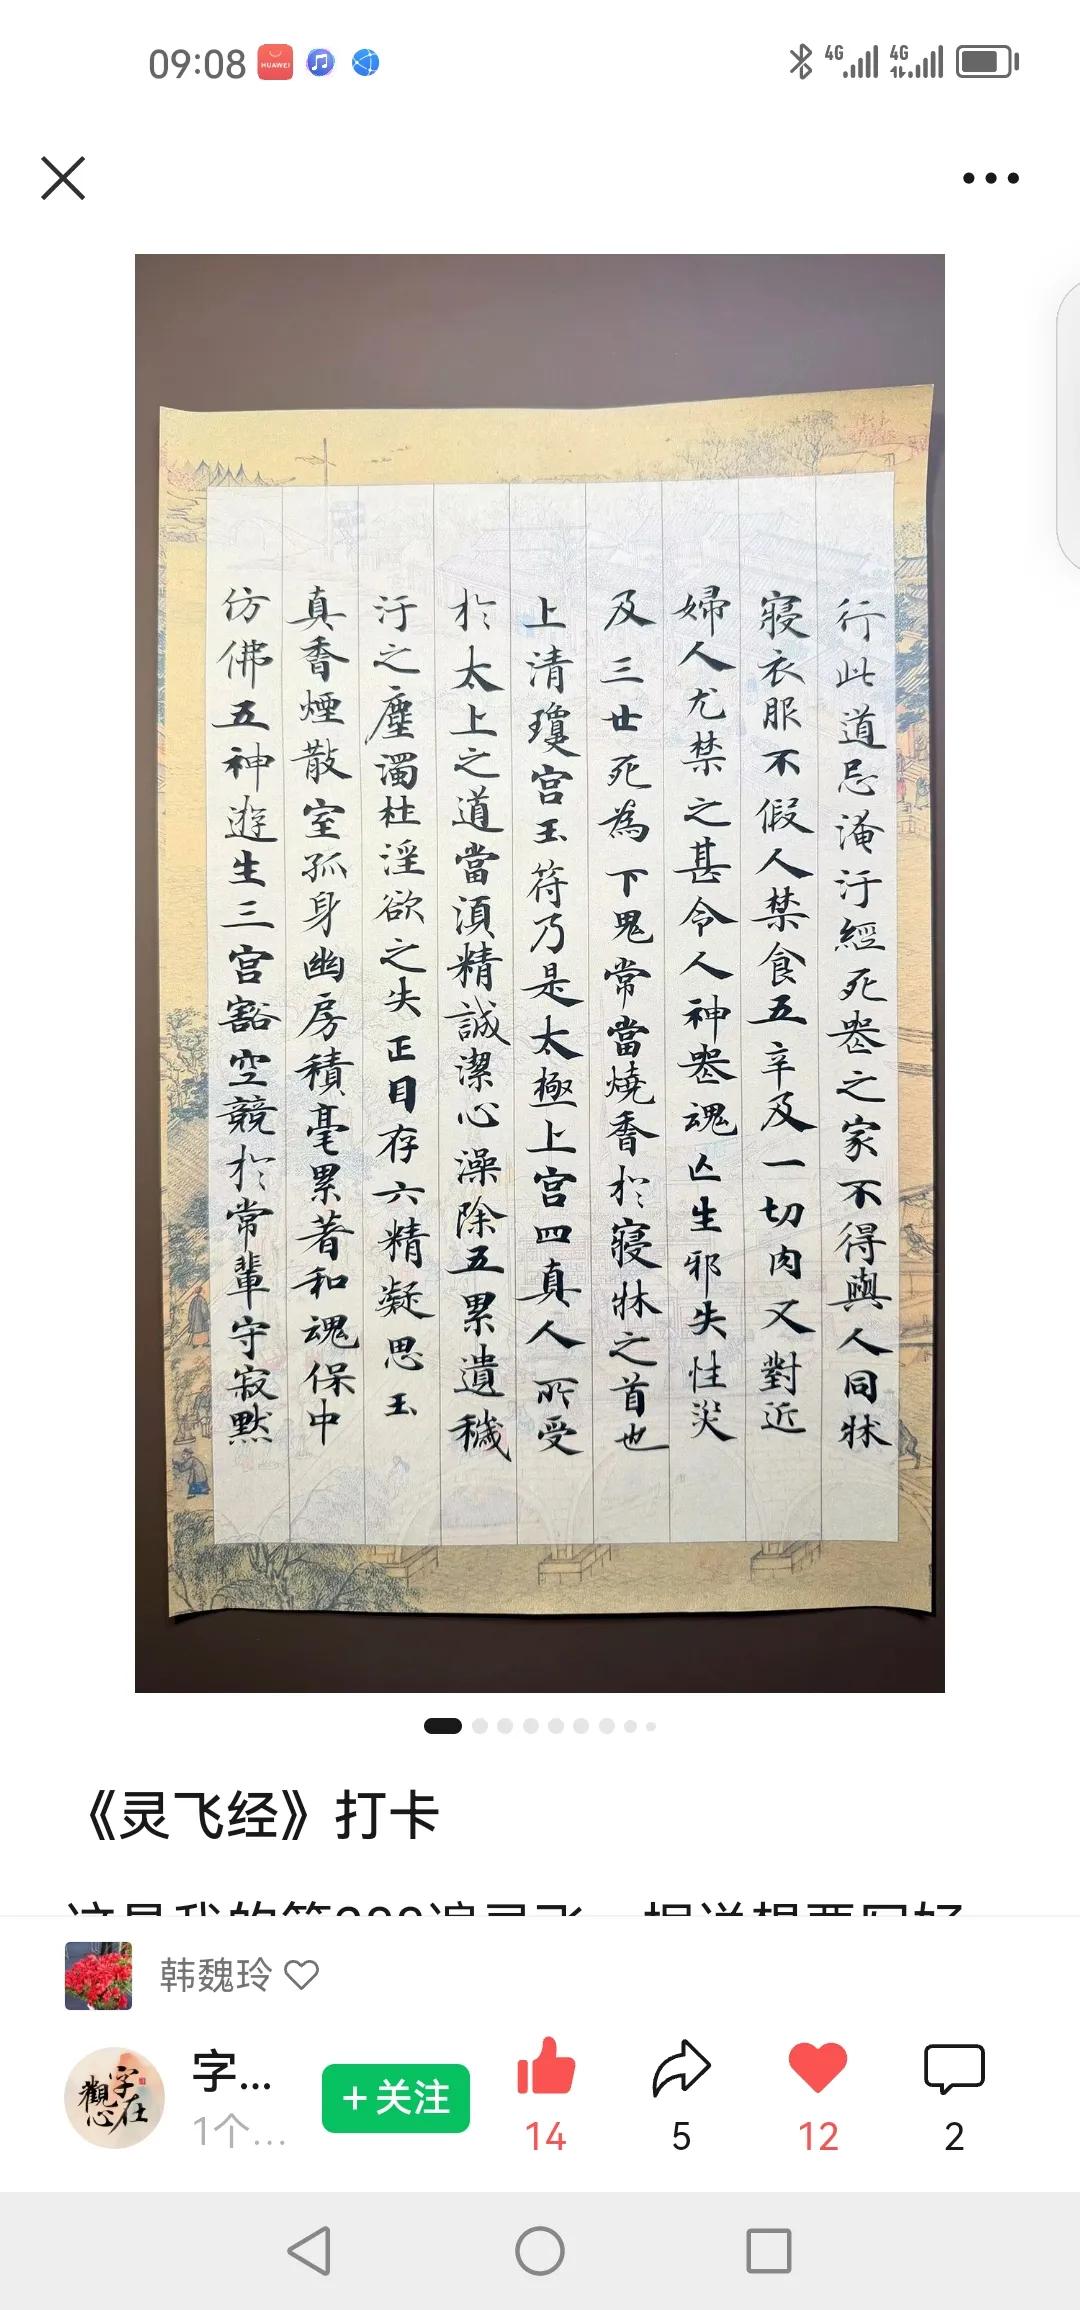 09:08
HUAWEI
4G
4G
行此道忌淹汙經死喪之家不得與人同牀
寢衣服不假人禁食五辛及一切肉又對近
婦人尤禁之甚令人神喪魂亡生邪失性災
及三世死為下鬼常當燒香於寢牀之首也
上清瓊宮玉符乃是太極上宮四真人所受
於太上之道當須精誠潔心澡除五累遺穢
汙之塵濁杜淫欲之失正目存六精凝思玉
真香煙散室孤身幽房積毫累著和魂保中
仿佛五神遊生三宮豁空競於常輩守寂默
《灵飞经》打卡
韩魏玲
觀字在心
字...
1个...
+关注
14
5
12
2